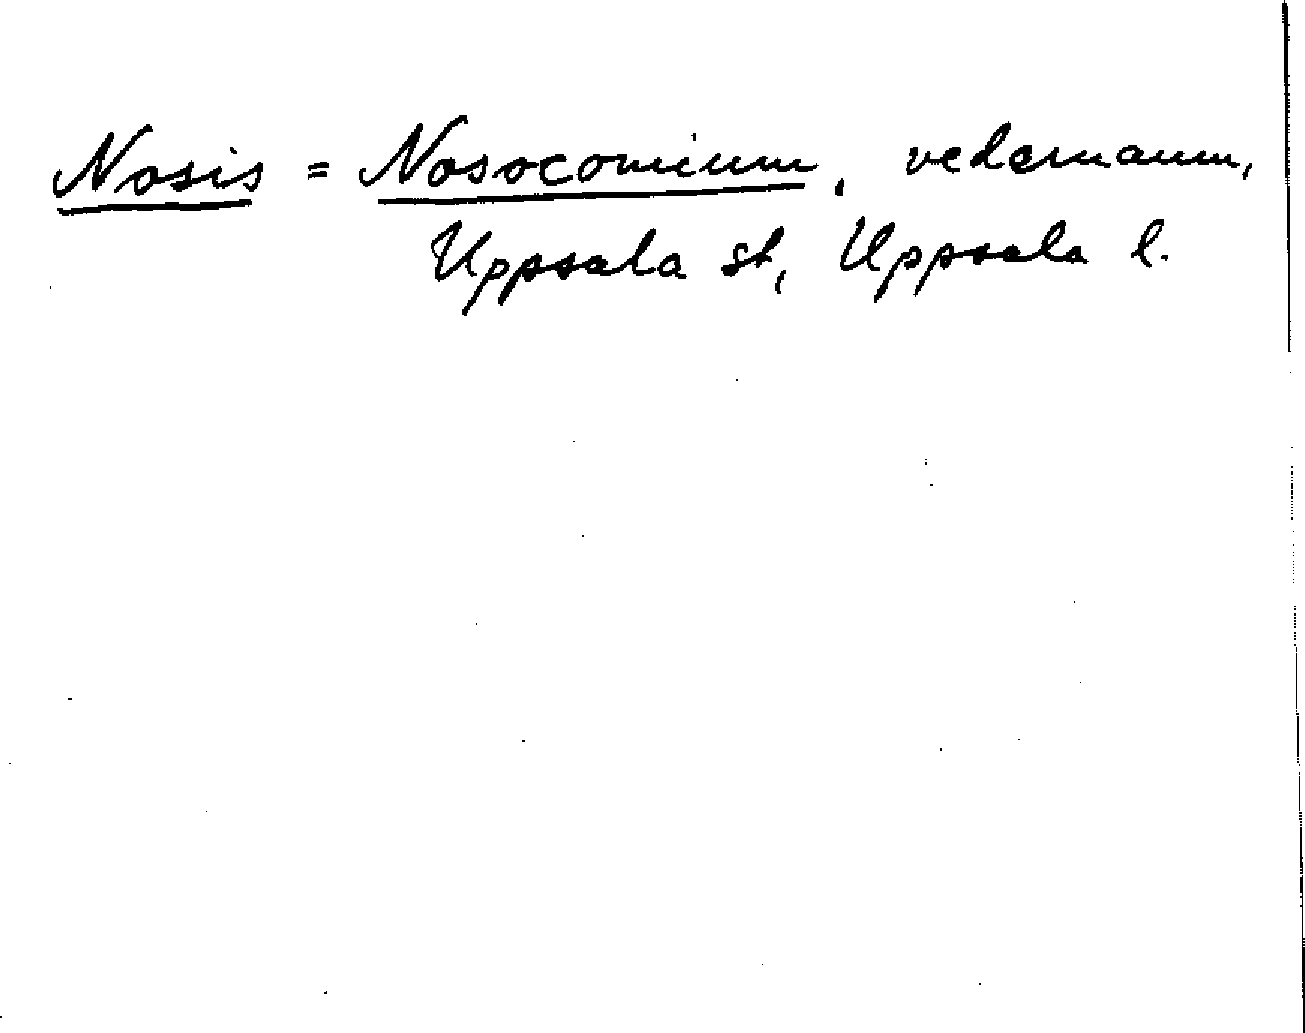 Nosis = Nosocomium, vedernamn,
Uppsala st, Uppsala l.